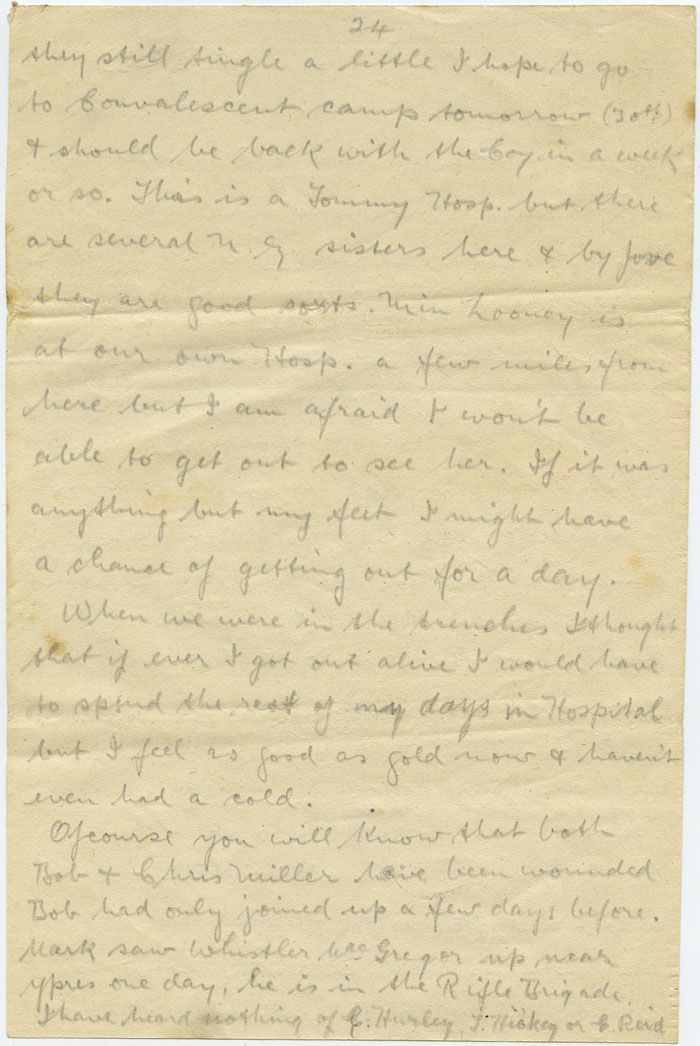 24
they still tingle a little I hope to go
to Convalescent camp tomorrow (30th)
& should be back with the Coy in a week
or so. This is a Tommy Hosp. but there
are several N.Z. sisters here & by Jove
they are good sorts. Min Looney is
at our own Hosp. a few miles from
here but I am afraid I won't be
able to get out to see her. If it was
anything but my feet I might have
a chance of getting out for a day.
When we were in the trenches I thought
that if ever I got out alive I would have
to spend the rest of my days in Hospital
but I feel as good as gold now & haven't
even had a cold.
Ofcourse you will know that both
Bob & Chris Miller have been wounded
Bob had only joined up a few days before.
Mark saw Whistler MacGregor up near
Ypres one day, he is in the Rifle Brigade.
I have heard nothing of C. Hurley, T. Hickey or C. Reid